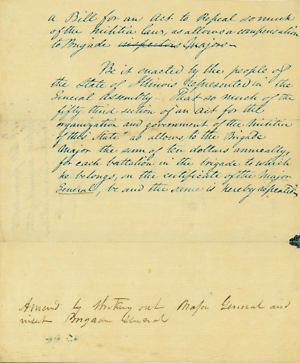 A Bill for an Act to Repeal so much
of the Militia Law, as allows a compensation
to Brigade inspectors Majors—
Be it enacted by the people of
the State of Illinois represented in the
General Assembly. That so much of the
fifty third section of an Act for the
organization and government of the Militia
of this State as allows to the Brigade
Major the sum of ten dollars annually,
for each battalion in the brigade to which
he belongs, on the certificate of the Major
General, be and the same is hereby repealed
Amend by Striking out Major General and
insert Brigade General